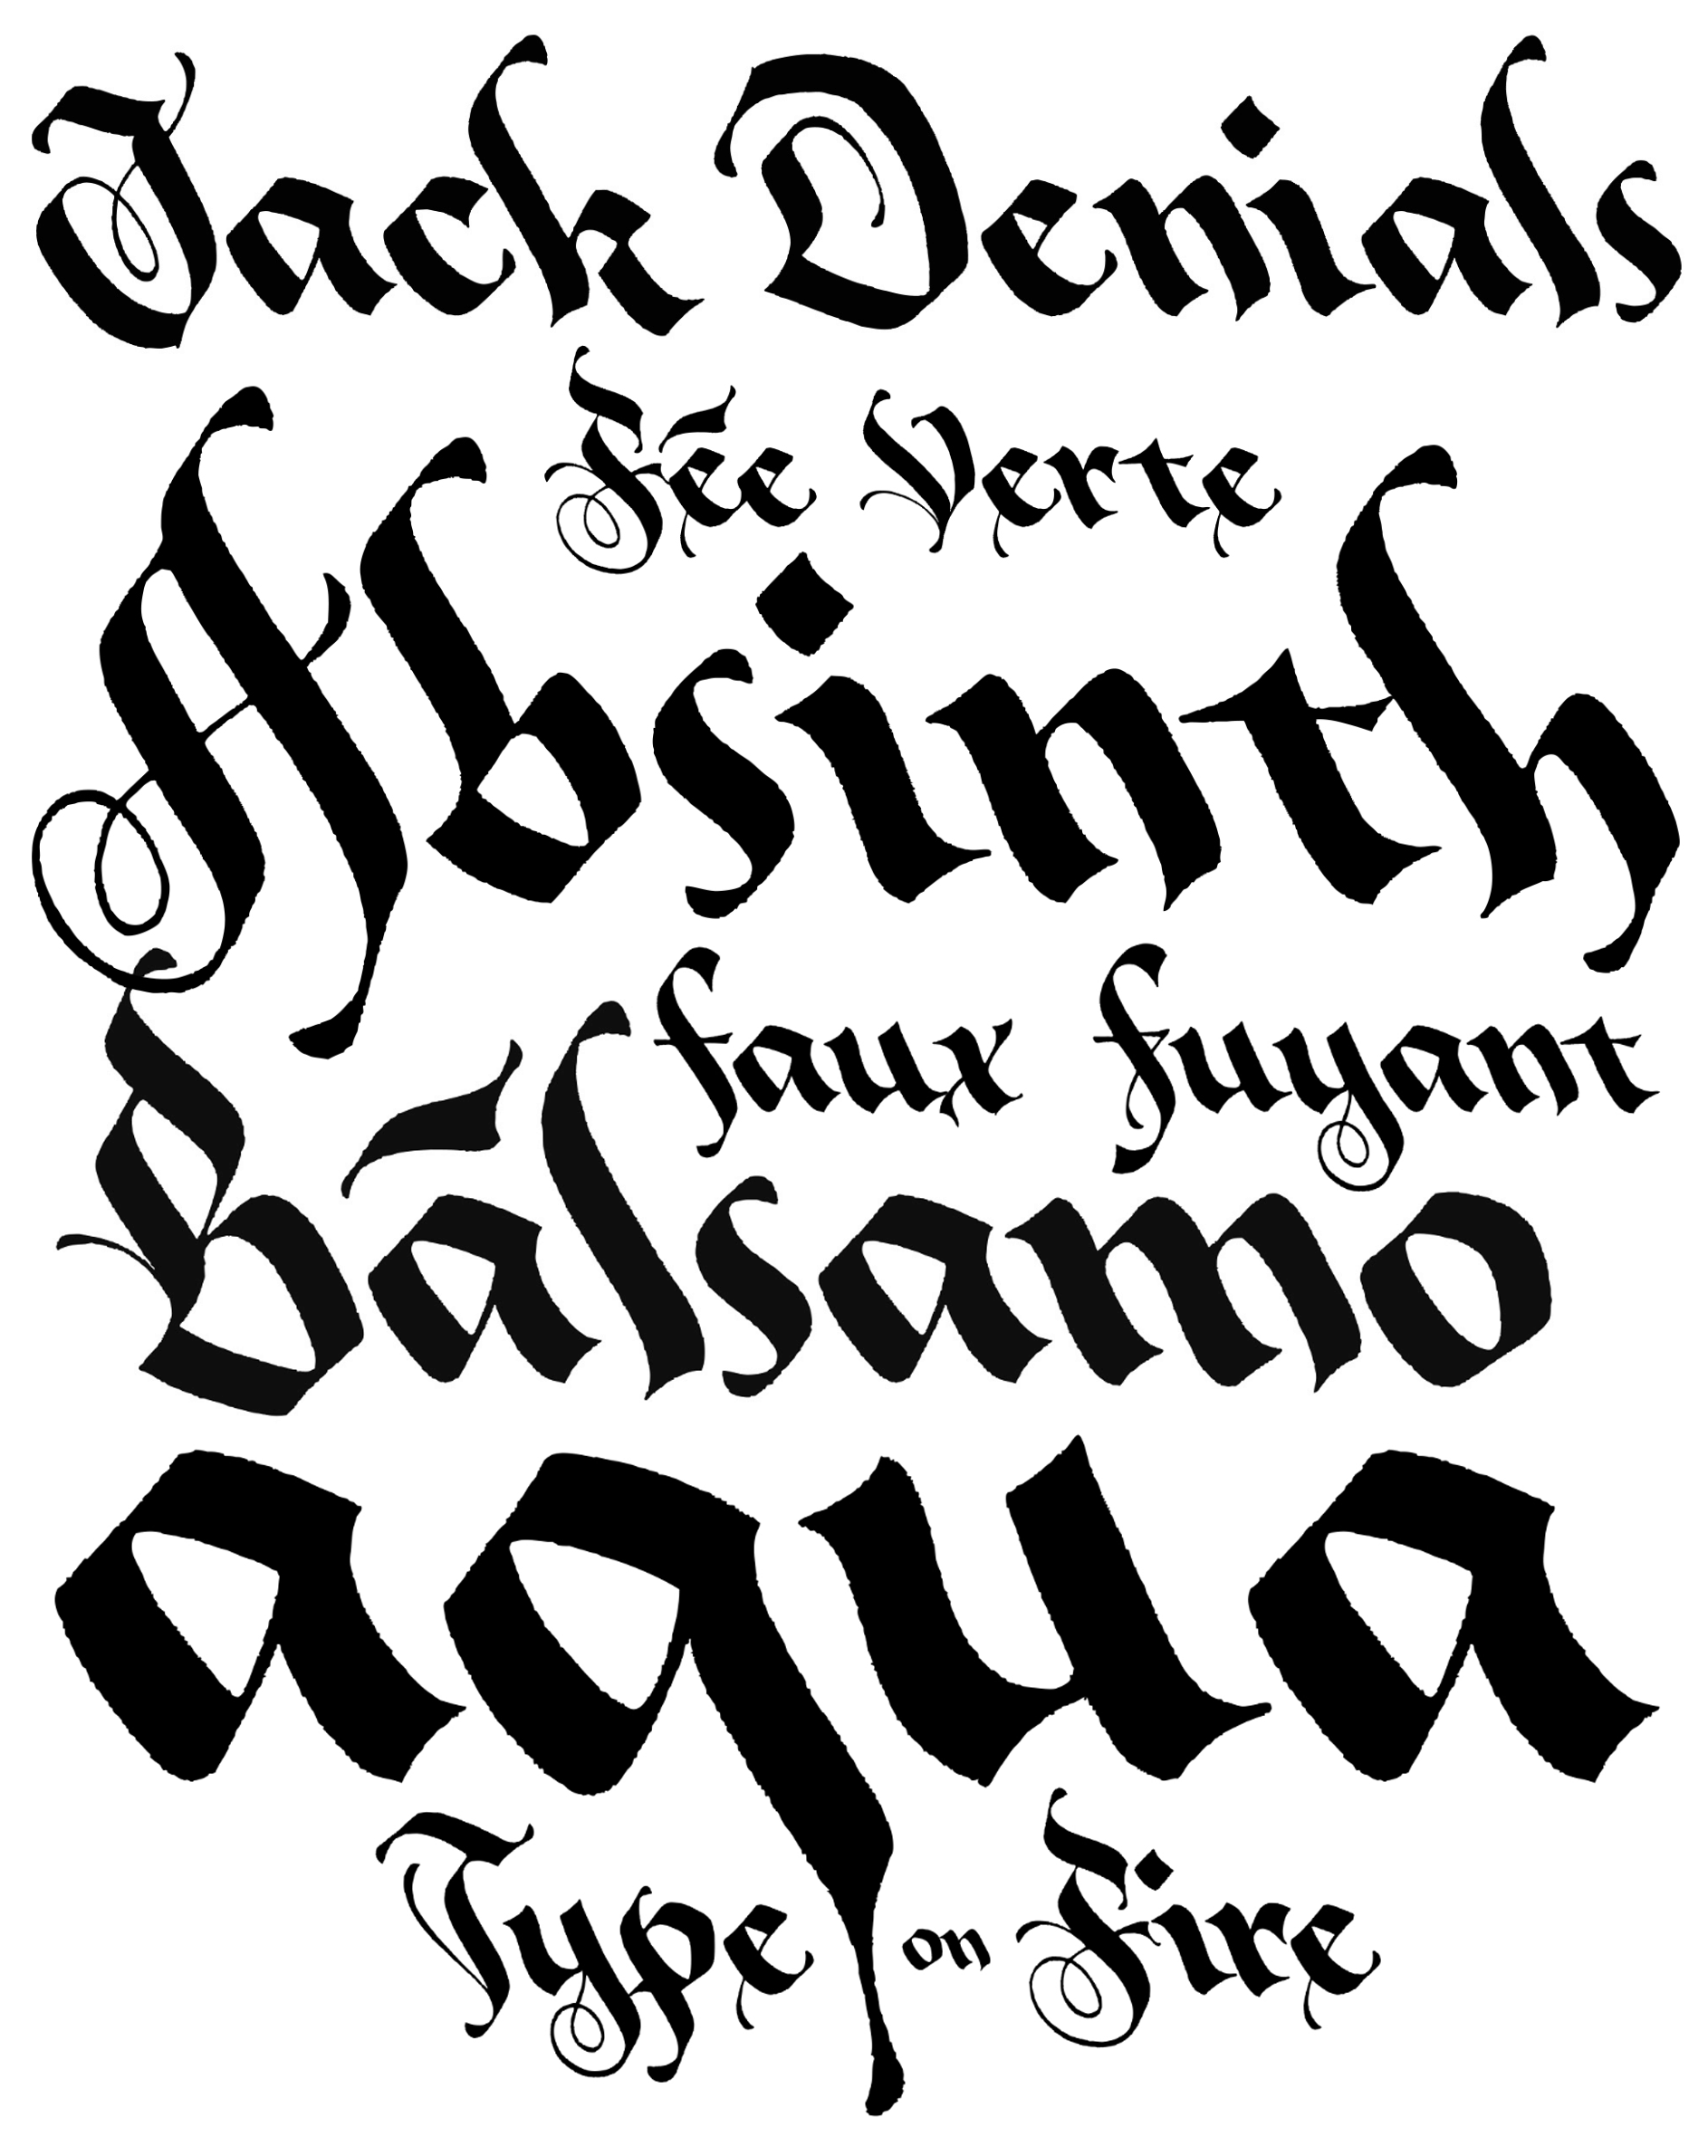 Jack Denials
Fée Verte
Absinth
faux fuyant
Bálsamo
aqua
Type on Fire